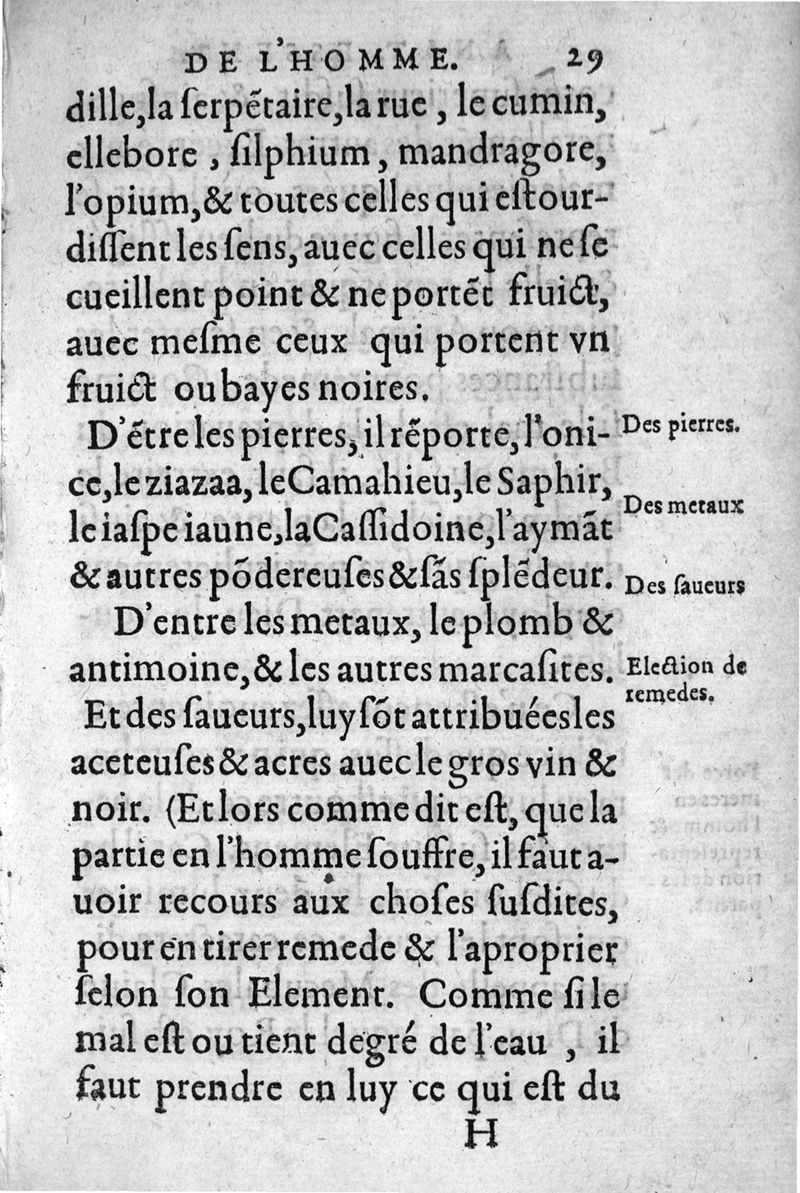 DE L'HOMME. 29
dille,la ſerpẽtaire,la rue , le cumin,
ellebore , ſilphium , mandragore,
l'opium,& toutes celles qui eſtour-
diſſent les ſens, auec celles qui ne ſe
cueillent point & ne portẽt fruict,
auec meſme ceux qui portent vn
fruict ou bayes noires.
D'ẽtre les pierres, il rẽporte, l'oni-
Des pierres.
ce,le ziazaa, le Camahieu,le Saphir,
le iaſpe iaune,la Caſſidoine,l'aymãt
Des metaux
& autres põdereuſes & ſãs ſplẽdeur.
Des ſaueurs
D'entre les metaux, le plomb &
antimoine,& les autres marcaſites.
Et des ſaueurs,luy ſõt attribuées les
Election de
remedes.
aceteuſes & acres auec le gros vin &
noir. (Et lors comme dit eſt, que la
partie en l'homme ſouffre, il faut a-
uoir recours aux choſes ſuſdites,
pour en tirer remede & l'aproprier
ſelon ſon Element. Comme ſi le
mal eſt ou tient degré de l'eau , il
faut prendre en luy ce qui eſt du
H